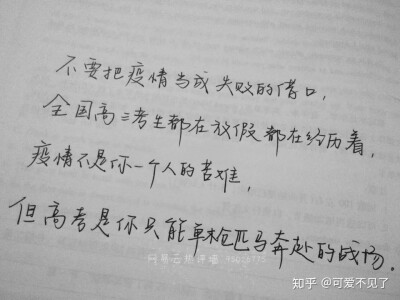 不要把疫情当成失败的借口，
全国高三考生都在放假都在经历着，
疫情不是你一个人的苦难，
但高考是你只能单枪匹马奔赴的战场．
网易云热评墙
知乎 @可爱不见了